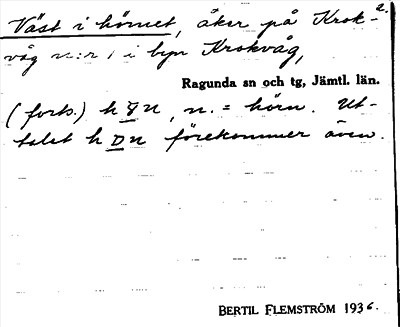 2.
Väst i hörnet, åker på Krok-
våg n:r 1 i byn Krokvåg,
Ragunda sn och tg, Jämtl. län.
(forts.) h n, n. = hörn. Ut-
talet h D n förekommer även.
BERTIL FLEMSTRÖM 1936.